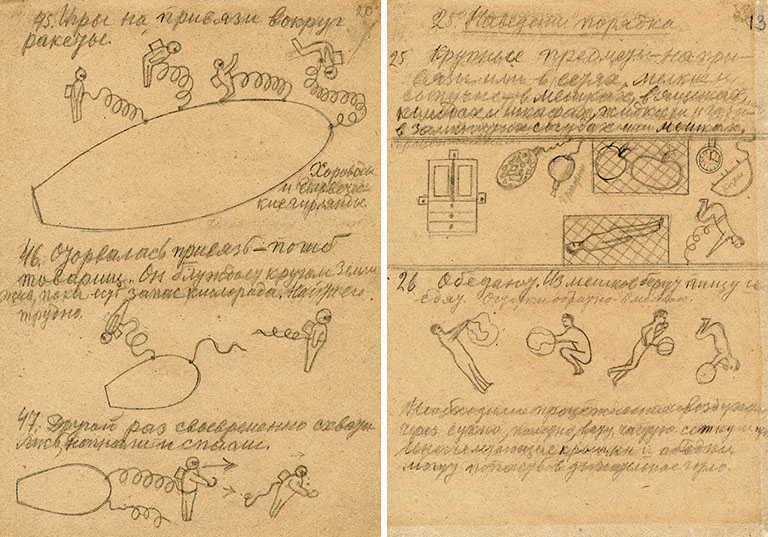 45. Игры на привязи вокруг
ракеты.
Хороводы
и
гирлянды
46. Оторвалась привязь – погиб
товарищ. Он блуждает кругом Земли
пока есть запас кислорода. Найти его
трудно.
47. Другой раз своевременно схвати-
лись, нагнали и спасли.
13
25 Наведение порядка
25 Крупные предметы – на при-
вязи или в сетях, мелкие и
сыпучие – в мешках, в ящиках,
и шкафах, жидкие и
в замкнутых сосудах или мешках,
26 Обедают. Из мешков берут пищу и
едят. обратно в мешок.
Необходимо воздуха
через сукно, воду, частую сетку и
крошки и
могут попадать в дыхательное горло